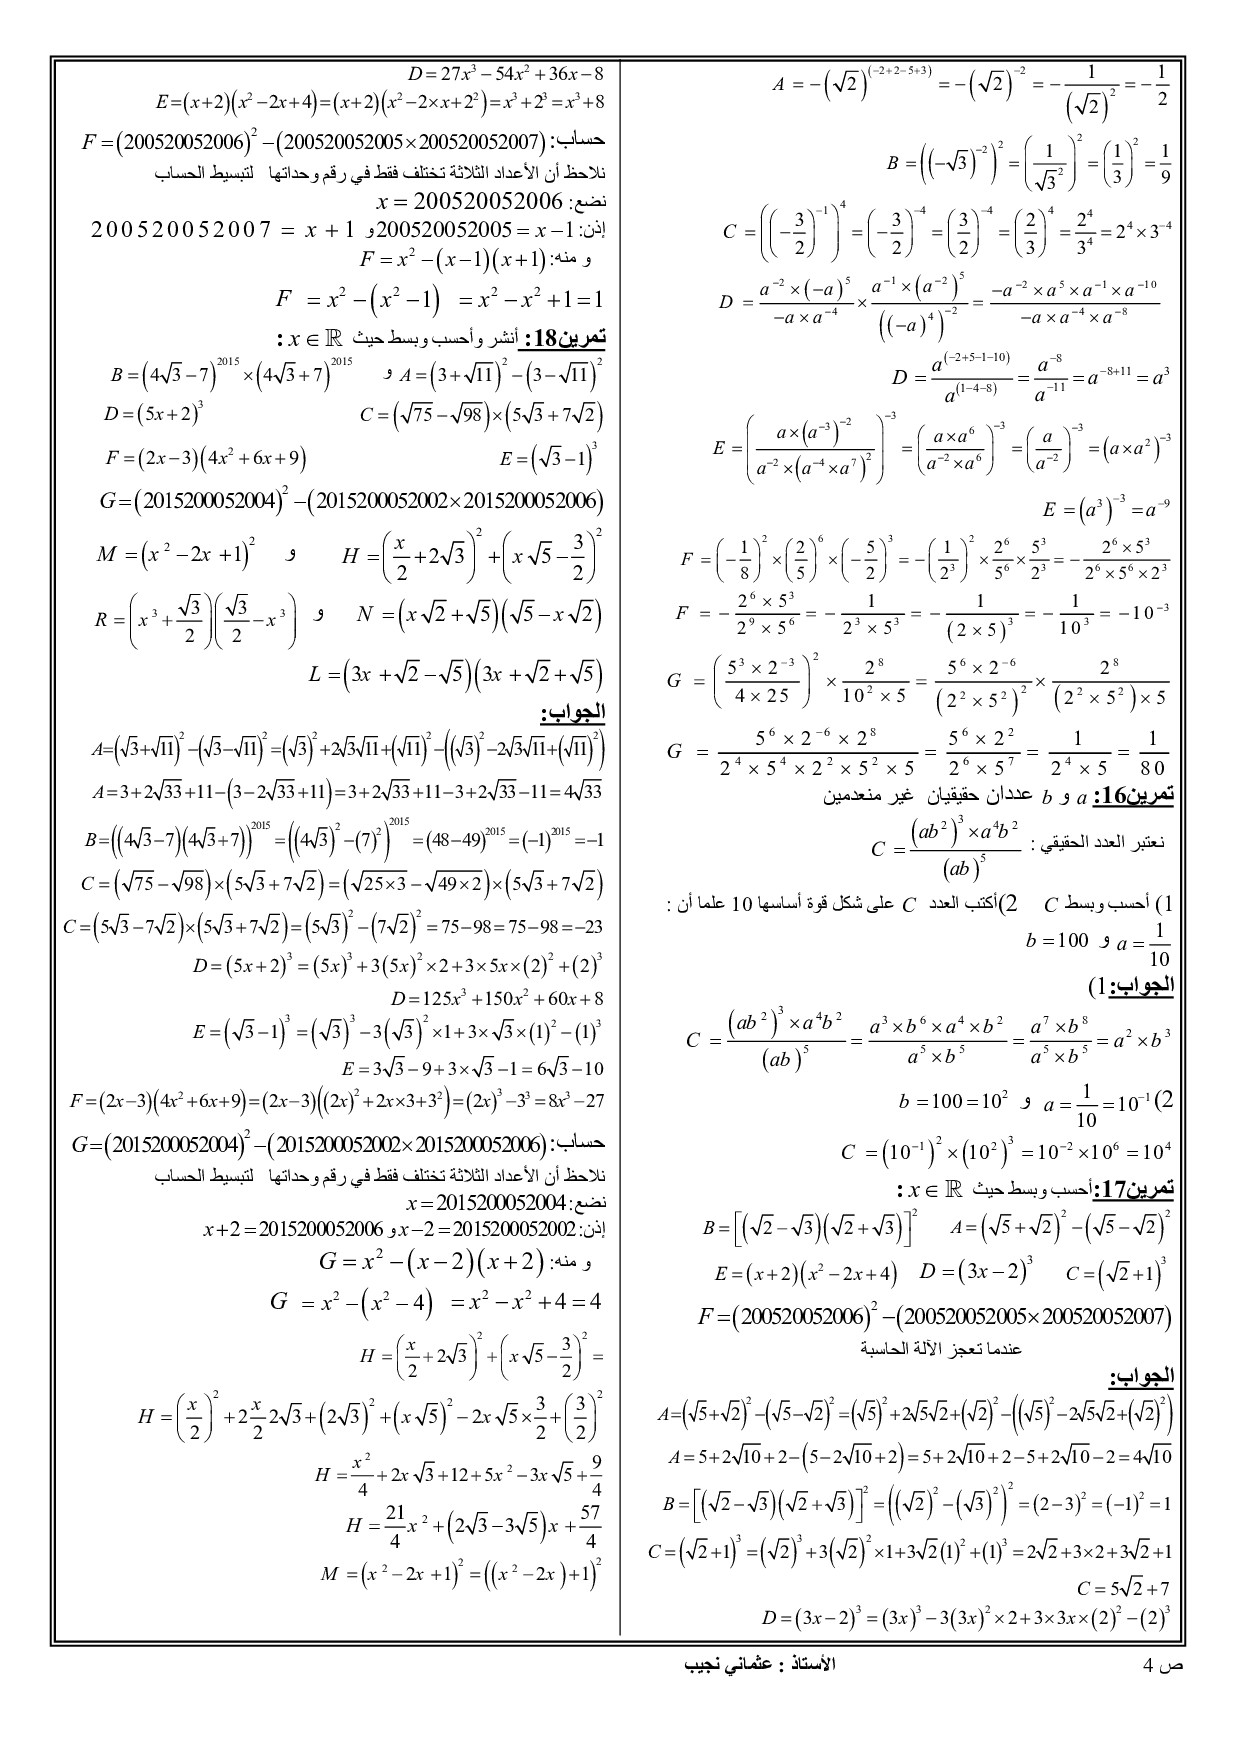 A = −(√2)^(−2+2−5+3) = −(√2)^−2 = −1/(√2)^2 = −1/2
B = ((−√3)^−2)^2 = (1/√3^2)^2 = (1/3)^2 = 1/9
C = ((−3/2)^−1)^4 = (−3/2)^−4 = (3/2)^−4 = (2/3)^4 = 2^4/3^4 = 2^4 × 3^−4
D = (a^−2 × (−a)^5)/(−a × a^−4) × (a^−1 × (a^−2)^5)/((−a)^4)^−2 = (−a^−2 × a^5 × a^−1 × a^−10)/(−a × a^−4 × a^−8)
D = a^(−2+5−1−10)/a^(1−4−8) = a^−8/a^−11 = a^−8+11 = a^3
E = ((a × (a^−3)^−2)/(a^−2 × (a^−4 × a^7)^2))^−3 = ((a × a^6)/(a^−2 × a^6))^−3 = (a/a^−2)^−3 = (a × a^2)^−3
E = (a^3)^−3 = a^−9
F = (−1/8)^2 × (2/5)^6 × (−5/2)^3 = −(1/2^3)^2 × 2^6/5^6 × 5^3/2^3 = −(2^6 × 5^3)/(2^6 × 5^6 × 2^3)
F = −(2^6 × 5^3)/(2^9 × 5^6) = −1/(2^3 × 5^3) = −1/(2 × 5)^3 = −1/10^3 = −10^−3
G = ((5^3 × 2^−3)/(4 × 25))^2 × 2^8/(10^2 × 5) = (5^6 × 2^−6)/(2^2 × 5^2)^2 × 2^8/((2^2 × 5^2) × 5)
G = (5^6 × 2^−6 × 2^8)/(2^4 × 5^4 × 2^2 × 5^2 × 5) = (5^6 × 2^2)/(2^6 × 5^7) = 1/(2^4 × 5) = 1/80
تمرين16: a و b عددان حقيقيان غير منعدمين
نعتبر العدد الحقيقي : C = ((ab^2)^3 × a^4b^2)/(ab)^5
1) أحسب وبسط C 2)أكتب العدد C على شكل قوة أساسها 10 علما أن :
a = 1/10 و b = 100
الجواب:1)
C = ((ab^2)^3 × a^4b^2)/(ab)^5 = (a^3 × b^6 × a^4 × b^2)/(a^5 × b^5) = (a^7 × b^8)/(a^5 × b^5) = a^2 × b^3
2) a = 1/10 = 10^−1 و b = 100 = 10^2
C = (10^−1)^2 × (10^2)^3 = 10^−2 × 10^6 = 10^4
تمرين17:أحسب وبسط حيث x ∈ ℝ :
A = (√5 + √2)^2 − (√5 − √2)^2 B = [(√2 − √3)(√2 + √3)]^2
C = (√2 + 1)^3 D = (3x − 2)^3 E = (x + 2)(x^2 − 2x + 4)
F = (200520052006)^2 − (200520052005 × 200520052007)
عندما تعجز الآلة الحاسبة
الجواب:
A = (√5 + √2)^2 − (√5 − √2)^2 = (√5)^2 + 2√5√2 + (√2)^2 − ((√5)^2 − 2√5√2 + (√2)^2)
A = 5 + 2√10 + 2 − (5 − 2√10 + 2) = 5 + 2√10 + 2 − 5 + 2√10 − 2 = 4√10
B = [(√2 − √3)(√2 + √3)]^2 = ((√2)^2 − (√3)^2)^2 = (2 − 3)^2 = (−1)^2 = 1
C = (√2 + 1)^3 = (√2)^3 + 3(√2)^2 × 1 + 3√2(1)^2 + (1)^3 = 2√2 + 3 × 2 + 3√2 + 1
C = 5√2 + 7
D = (3x − 2)^3 = (3x)^3 − 3(3x)^2 × 2 + 3 × 3x × (2)^2 − (2)^3
D = 27x^3 − 54x^2 + 36x − 8
E = (x + 2)(x^2 − 2x + 4) = (x + 2)(x^2 − 2 × x + 2^2) = x^3 + 2^3 = x^3 + 8
حساب: F = (200520052006)^2 − (200520052005 × 200520052007)
نلاحظ أن الأعداد الثلاثة تختلف فقط في رقم وحداتها لتبسيط الحساب
نضع: x = 200520052006
إذن: 200520052005 = x − 1 و 200520052007 = x + 1
و منه: F = x^2 − (x − 1)(x + 1)
F = x^2 − (x^2 − 1) = x^2 − x^2 + 1 = 1
تمرين18: أنشر وأحسب وبسط حيث x ∈ ℝ :
A = (3 + √11)^2 − (3 − √11)^2 و B = (4√3 − 7)^2015 × (4√3 + 7)^2015
C = (√75 − √98) × (5√3 + 7√2) D = (5x + 2)^3
E = (√3 − 1)^3 F = (2x − 3)(4x^2 + 6x + 9)
G = (2015200052004)^2 − (2015200052002 × 2015200052006)
H = (x/2 + 2√3)^2 + (x√5 − 3/2)^2 و M = (x^2 − 2x + 1)^2
N = (x√2 + √5)(√5 − x√2) و R = (x^3 + √3/2)(√3/2 − x^3)
L = (3x + √2 − √5)(3x + √2 + √5)
الجواب:
A = (√3 + √11)^2 − (√3 − √11)^2 = (√3)^2 + 2√3√11 + (√11)^2 − ((√3)^2 − 2√3√11 + (√11)^2)
A = 3 + 2√33 + 11 − (3 − 2√33 + 11) = 3 + 2√33 + 11 − 3 + 2√33 − 11 = 4√33
B = ((4√3 − 7)(4√3 + 7))^2015 = ((4√3)^2 − (7)^2)^2015 = (48 − 49)^2015 = (−1)^2015 = −1
C = (√75 − √98) × (5√3 + 7√2) = (√25×3 − √49×2) × (5√3 + 7√2)
C = (5√3 − 7√2) × (5√3 + 7√2) = (5√3)^2 − (7√2)^2 = 75 − 98 = 75 − 98 = −23
D = (5x + 2)^3 = (5x)^3 + 3(5x)^2 × 2 + 3 × 5x × (2)^2 + (2)^3
D = 125x^3 + 150x^2 + 60x + 8
E = (√3 − 1)^3 = (√3)^3 − 3(√3)^2 × 1 + 3 × √3 × (1)^2 − (1)^3
E = 3√3 − 9 + 3 × √3 − 1 = 6√3 − 10
F = (2x − 3)(4x^2 + 6x + 9) = (2x − 3)((2x)^2 + 2x × 3 + 3^2) = (2x)^3 − 3^3 = 8x^3 − 27
حساب: G = (2015200052004)^2 − (2015200052002 × 2015200052006)
نلاحظ أن الأعداد الثلاثة تختلف فقط في رقم وحداتها لتبسيط الحساب
نضع: x = 2015200052004
إذن: x − 2 = 2015200052002 و x + 2 = 2015200052006
و منه: G = x^2 − (x − 2)(x + 2)
G = x^2 − (x^2 − 4) = x^2 − x^2 + 4 = 4
H = (x/2 + 2√3)^2 + (x√5 − 3/2)^2 =
H = (x/2)^2 + 2 x/2 2√3 + (2√3)^2 + (x√5)^2 − 2x√5 × 3/2 + (3/2)^2
H = x^2/4 + 2x√3 + 12 + 5x^2 − 3x√5 + 9/4
H = 21/4 x^2 + (2√3 − 3√5)x + 57/4
M = (x^2 − 2x + 1)^2 = ((x^2 − 2x) + 1)^2
ص 4 الأستاذ : عثماني نجيب